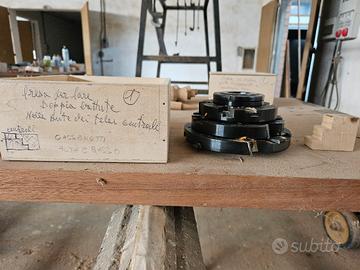 fresa per fare
Doppia battuta
Nelle ante dei telai centrali
centrali
CASSONETTI
ALTO E BASSO
subito